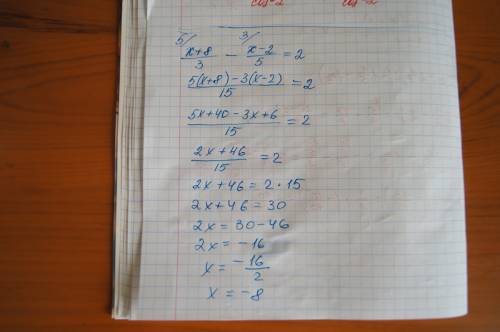 cos²2 cos²2
5/ 3/
x+8/3 - x-2/5 = 2
5(x+8)-3(x-2)/15 = 2
5x+40-3x+6/15 = 2
2x+46/15 = 2
2x+46 = 2·15
2x+46 = 30
2x = 30-46
2x = -16
x = -16/2
x = -8